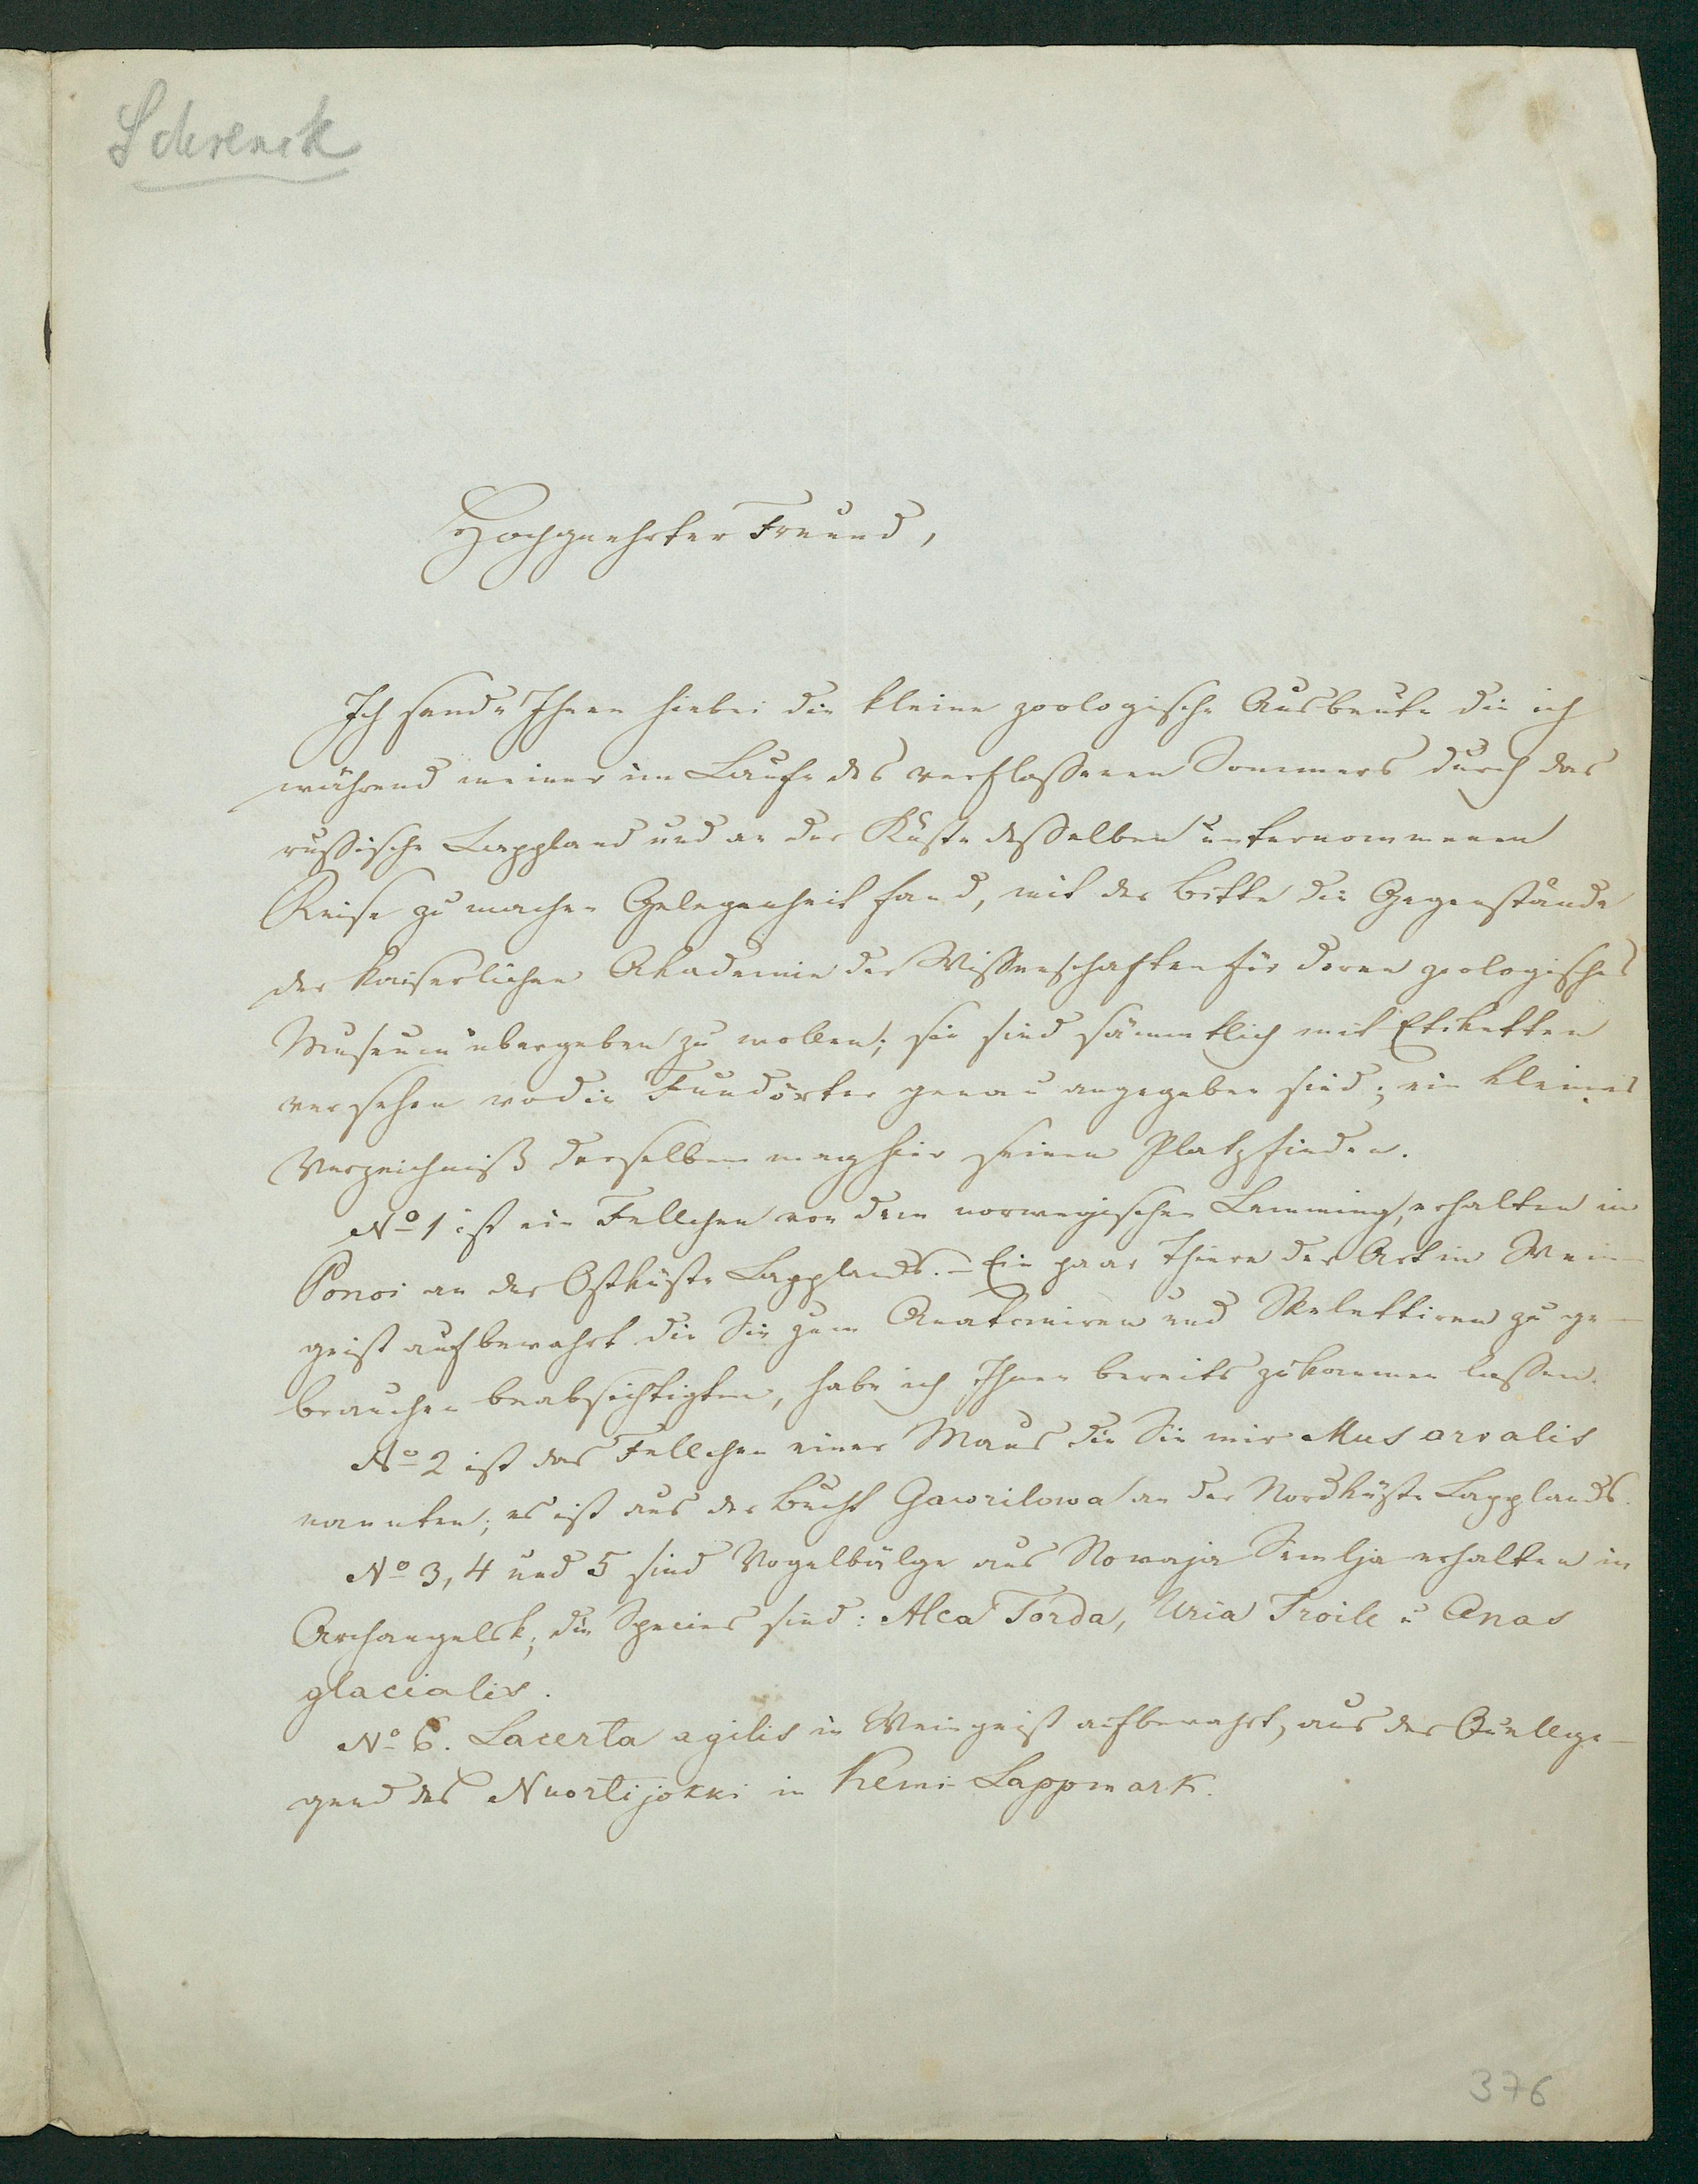 Schrenck
Hochgeehrter Freund,
Ich sende Ihnen hiebei die kleine zoologische Ausbeute die ich
während meiner im Laufe des verfloßenen Sommers durch das
rußische Lappland und an der Küste deßelben unternommenen
Reise zu machen Gelegenheit fand, mit der Bitte die Gegenstände
der Kaiserlichen Akademie der Wißenschaften für deren zoologisches
Museum übergeben zu wollen; sie sind sämmtlich mit Etiketten
versehen wo die Fundörter genau angegeben sind; ein kleines
Verzeichniß derselben mag hier seinen Platz finden.
No 1 ist ein Fellchen von dem norwegischen Lemming, erhalten in
Ponoi an der Ostküste Lapplands. – Ein paar Thiere der Art in Wein-
geist aufbewahrt die Sie zum Anatomiren und Skelettiren zu ge-
brauchen beabsichtigten, habe ich Ihnen bereits zukommen laßen.
No 2 ist das Fellchen einer Maus die Sie mir Mus arvalis
nannten; es ist aus der Bucht Gawrilowa an der Nordküste Lapplands.
No 3, 4 und 5 sind Vogelbälge aus Nowaja Semlja erhalten in
Archangelsk; die Species sind: Alca Torda, Uria Troile u Anas
glacialis.
No 6. Lacerta agilis in Weingeist aufbewahrt, aus der Quellge-
gend des Nuortijokki in Kemi-Lappmark.
376